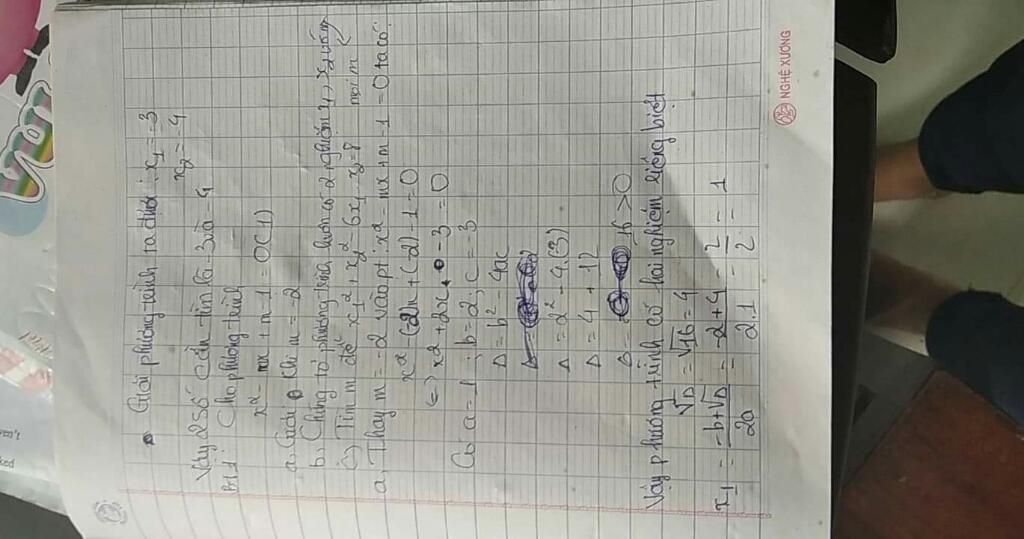 Giải phương trình ta được: x₁ = -3
x₂ = -4
Vậy 2 số cần tìm là -3 và -4
Bài Cho phương trình
x² - mx + m - 1 = 0 (1)
a. Giải khi m = -2
b. Chứng tỏ phương trình luôn có 2 nghiệm x₁, x₂ với mọi m
c) Tìm m để x₁² + x₂² - 6x₁.x₂ = 8
a. Thay m = -2 vào pt: x² - mx + m - 1 = 0 ta có:
x² - (-2)x + (-2) - 1 = 0
<=> x² + 2x - 3 = 0
Có a = 1; b = 2, c = -3
Δ = b² - 4ac
Δ = 2² - 4.(3)
Δ = 4 + 12
Δ = 16 > 0
Vậy phương trình có hai nghiệm riêng biệt
√Δ = √16 = 4
x₁ = -b+√Δ / 2a = -2+4 / 2.1 = 2 / 2 = 1
NGHỆ XƯƠNG